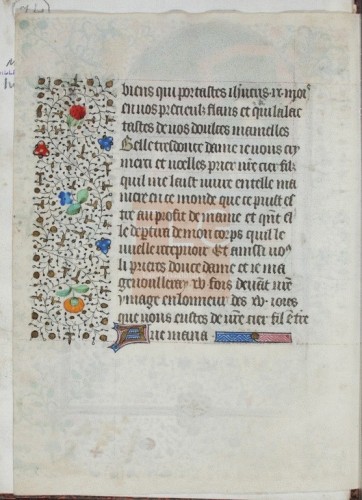 biens qui portastes ihūcrist ix moiˢ
en vos precieulx flans et qui lalai
tastes de vos doulces mamelles
Belle tresdouce dame ie vous cry
merci et vueilles prier vr̄e cier fil
quil me laist viure en telle ma
niere en ce monde que ce puist es
tre au profit de mame et que el
le departira de mon corps quil le
vueille recepuoir Et ainssi vo⁹
li prieres douce dame et ie ma
genoulleray xv fois deuāt vr̄e
ymage en lonneur des xv ioies
que vous eustes de vr̄e cier fil en tre
Aue maria